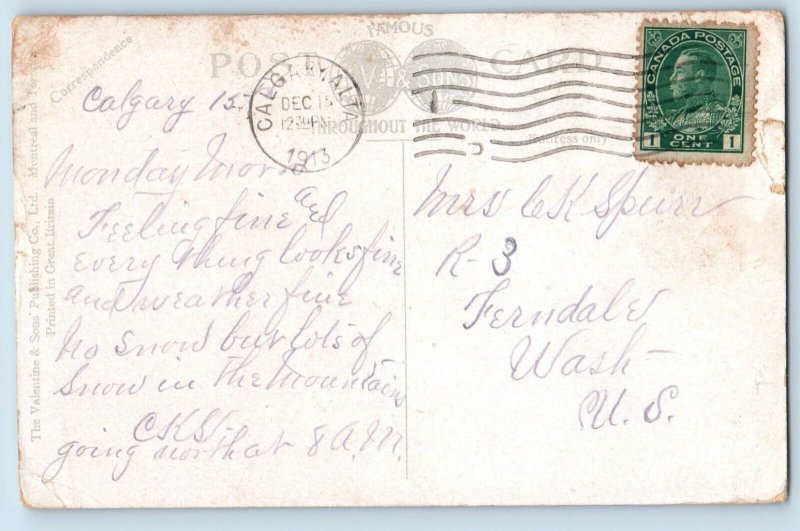 Correspondence
FAMOUS
POST CARD
V. & SONS
THROUGHOUT THE WORLD
Address only
The Valentine & Sons' Publishing Co., Ltd. Montreal and
Printed in Great Britain
CALGARY, ALTA
DEC 15
12 30 PM
1913
CANADA POSTAGE
1 ONE CENT 1
Calgary 15
Monday Morn
Feeling fine and
every thing looks fine
and weather fine
no snow but lots of
snow in the mountains
CKS
going north at 8 A.M.
Mrs CK Spurr
R-3
Ferndale
Wash-
U.S.